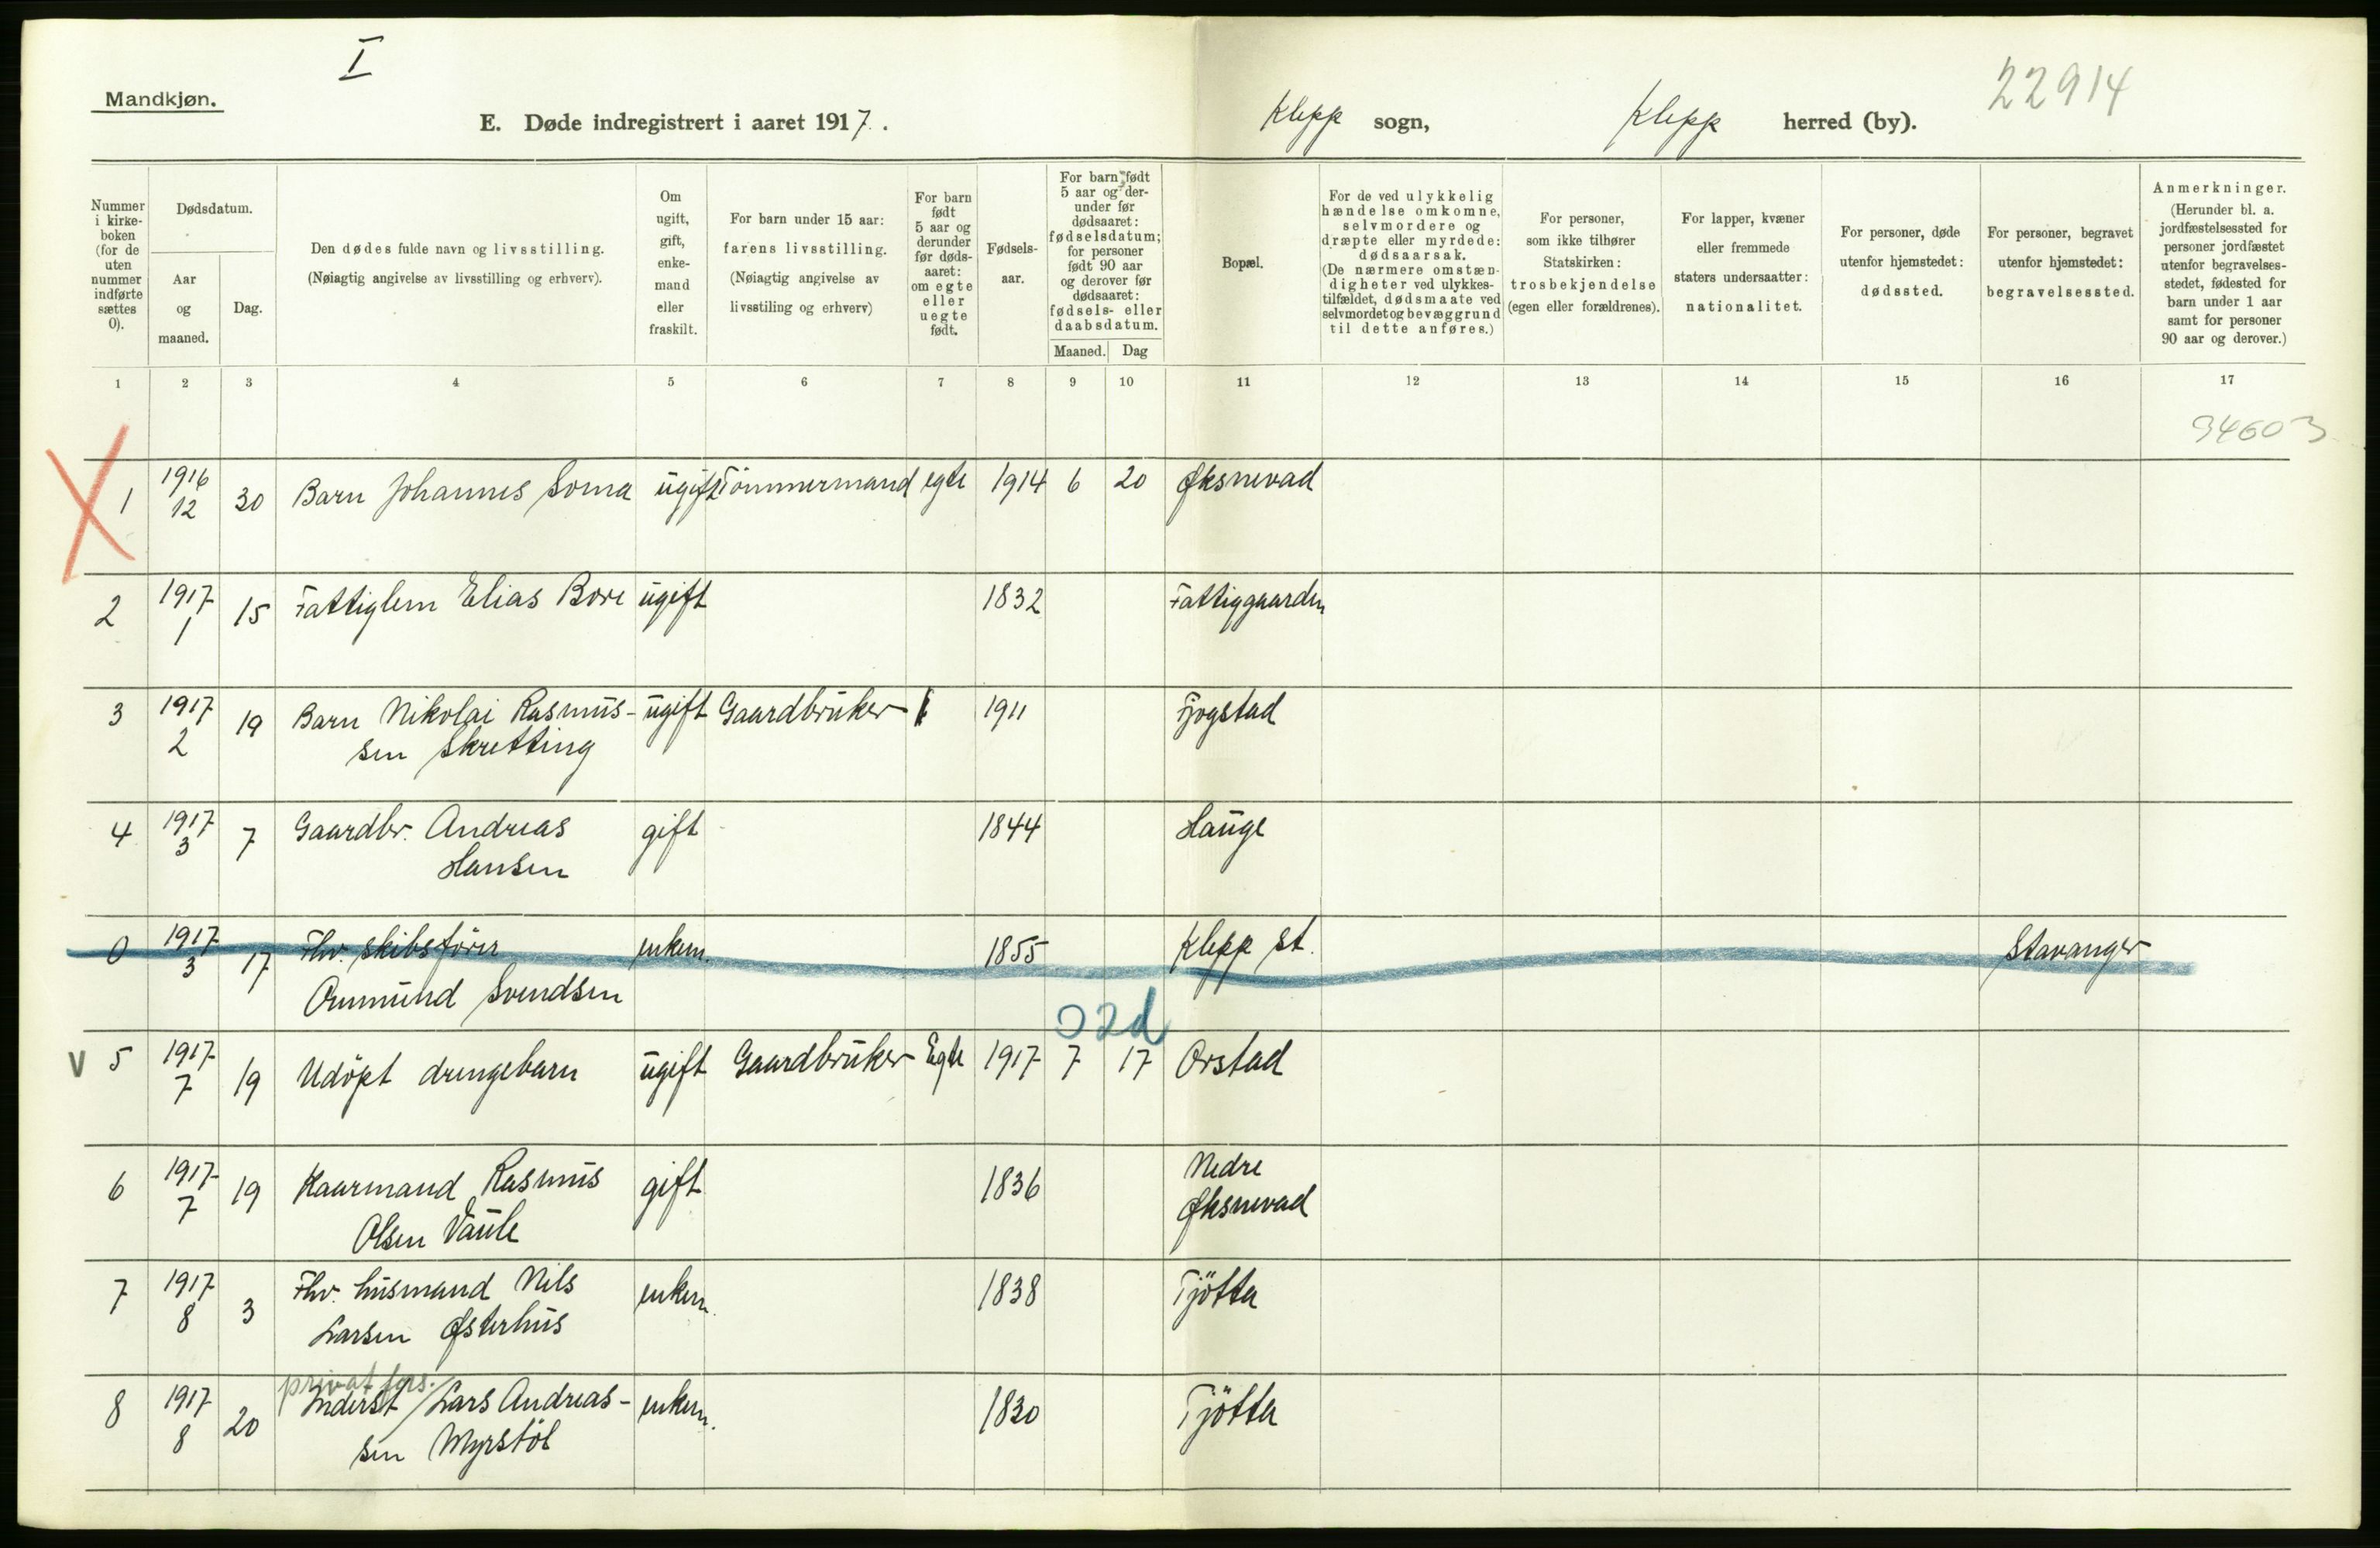 I
Mandkjøn.
E. Døde indregistrert i aaret 1917.
Klepp sogn,
Klepp herred (by).
22914
Nummer
i kirke-
boken
(for de
uten
nummer
indførte
sættes
0).
Dødsdatum.
Aar
og
maaned.
Dag.
Den dødes fulde navn og livsstilling.
(Nøiagtig angivelse av livsstilling og erhverv).
Om
ugift,
gift,
enke-
mand
eller
fraskilt.
For barn under 15 aar:
farens livsstilling.
(Nøiagtig angivelse av
livsstiling og erhverv)
For barn
født
5 aar og
derunder
før døds-
aaret:
om egte
eller
uegte
født.
Fødsels-
aar.
For barn født
5 aar og der-
under før
dødsaaret:
fødselsdatum;
for personer
født 90 aar
og derover før
dødsaaret:
fødsels- eller
daabsdatum.
Maaned. Dag
Bopæl.
For de ved ulykkelig
hændelse omkomne,
selvmordere og
dræpte eller myrdede:
dødsaarsak.
(De nærmere omstæn-
digheter ved ulykkes-
tilfældet, dødsmaate ved
selvmordet og bevæggrund
til dette anføres.)
For personer,
som ikke tilhører
Statskirken:
trosbekjendelse
(egen eller forældrenes).
For lapper, kvæner
eller fremmede
staters undersaatter:
nationalitet.
For personer, døde
utenfor hjemstedet:
dødssted.
For personer, begravet
utenfor hjemstedet:
begravelsessted.
Anmerkninger.
(Herunder bl. a.
jordfæstelsessted for
personer jordfæstet
utenfor begravelses-
stedet, fødested for
barn under 1 aar
samt for personer
90 aar og derover.)
1 2 3 4 5 6 7 8 9 10 11 12 13 14 15 16 17
94603
1 1916 12 30 Barn Johannes Soma ugift Tömmermand egte 1914 6 20 Øksnevad
2 1917 1 15 Fattiglem Elias Bore ugift 1832 Fattiggaarden
3 1917 2 19 Barn Nikolai Rasmus- ugift Gaardbruker 1911 Fjogstad
sen Skretting
4 1917 3 7 Gaardbr. Andreas gift 1844 Hauge
Hansen
0 1917 3 17 Fhv. skibsförer enkem. 1855 Klepp st. Stavanger
Ommund Svendsen
02d
V 5 1917 7 19 Udöpt drengebarn ugift Gaardbruker Egte 1917 7 17 Orstad
6 1917 7 19 Kaarmand Rasmus gift 1836 Nedre
Olsen Vaule Øksnevad
7 1917 8 3 Fhv. husmand Nils enkem. 1838 Tjötta
Larsen Østerhus
privat fors.
8 1917 8 20 Inderst Lars Andreas- enkem. 1830 Tjötta
sen Myrstöl